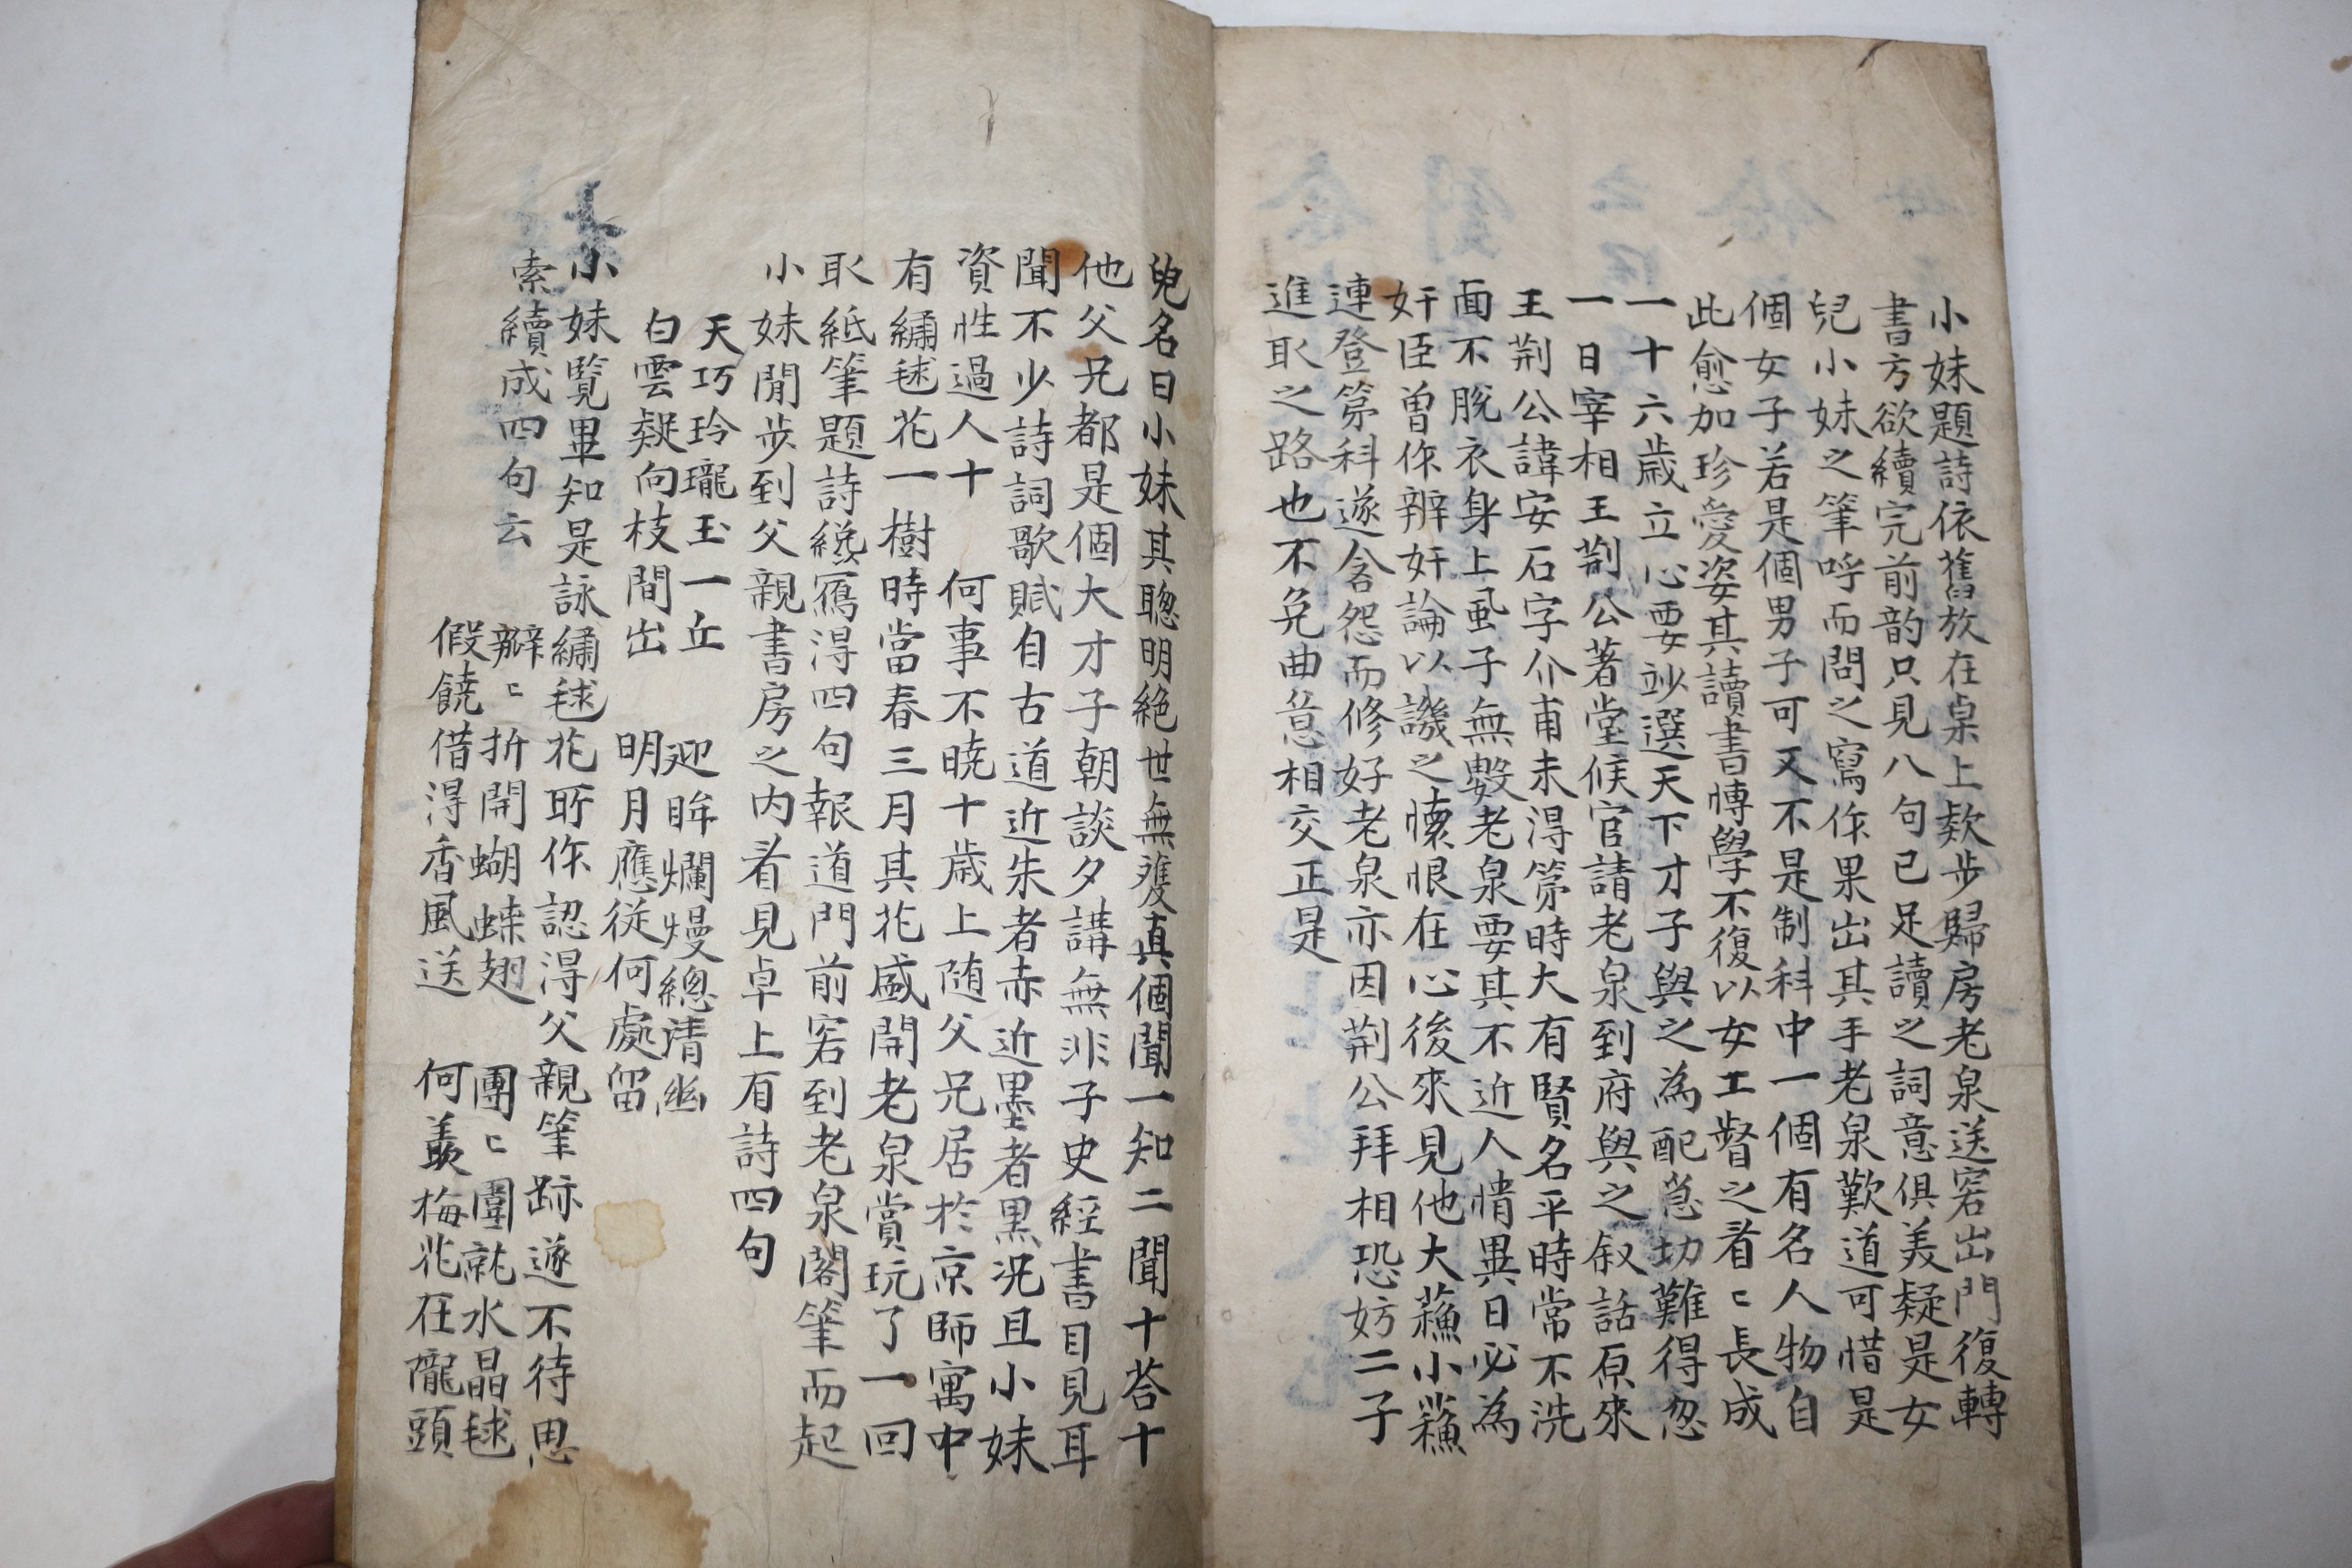 小妹題詩依舊放在桌上欵步歸房老泉送客出門復轉
書方欲續完前韵只見八句已足讀之詞意俱美疑是女
兒小妹之筆呼而問之寫作果出其手老泉歎道可惜是
個女子若是個男子可又不是制科中一個有名人物自
此愈加珍愛姿其讀書愽學不復以女工督之看〻長成
一十六歲立心要竗選天下才子與之為配急切難得忽
一日宰相王荆公著堂候官請老泉到府與之叙話原來
王荆公諱安石字介甫未得第時大有賢名平時常不洗
面不脫衣身上風子無數老泉要其不近人情異日必為
奸臣曽作辨奸論以譏之懷恨在心後來見他大蘓小蘓
連登第科遂含怨而修好老泉亦因荆公拜相恐妨二子
進取之路也不免曲意相交正是
兒名曰小妹其聰明絶世無雙真個聞一知二聞十荅十
他父兄都是個大才子朝談夕講無非子史經書目見耳
聞不少詩詞歌賦自古道近朱者赤近墨者黑况且小妹
資性過人十　何事不曉十歲上随父兄居於京師寓中
有繡毬花一樹時當春三月其花盛開老泉賞玩了一回
取紙筆題詩纔寫得四句報道門前客到老泉閣筆而起
小妹閒步到父親書房之内看見卓上有詩四句
天巧玲瓏玉一丘　迎眸爛熳總清幽
白雲疑向枝間出　明月應從何處留
小妹覽畢知是詠繡毬花所作認得父親筆跡遂不待思
索續成四句云
瓣〻折開蝴蝶翅　團〻圍就水晶毬
假饒借得香風送　何羨梅花在隴頭